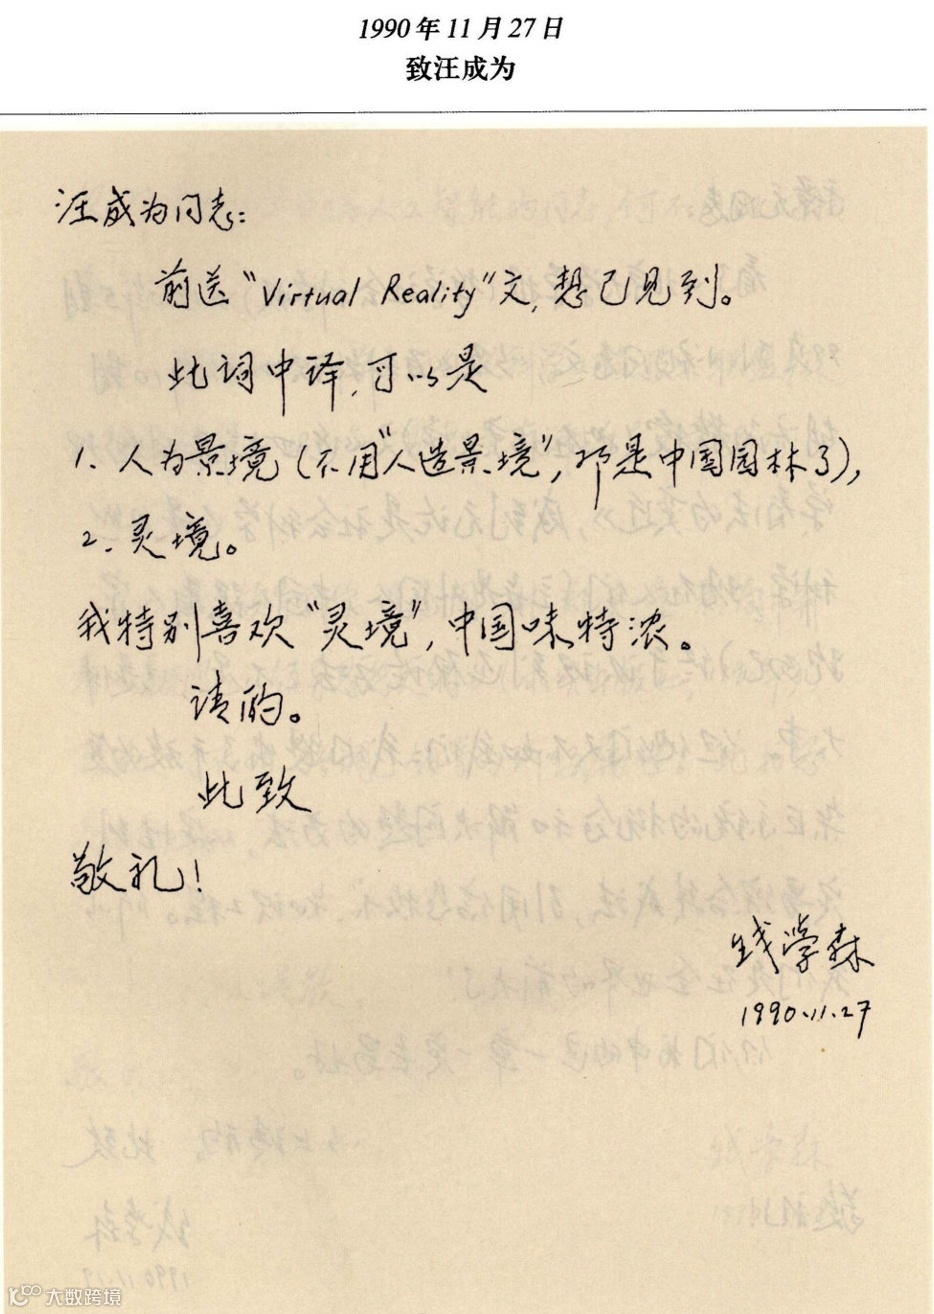 1990年11月27日
致汪成为
汪成为同志：
前送“Virtual Reality”文，想已见到。
此词中译，可以是
1. 人为景境（不用“人造景境”，那是中国园林了），
2. 灵境。
我特别喜欢“灵境”，中国味特浓。
请酌。
此致
敬礼！
钱学森
1990.11.27
大数跨境